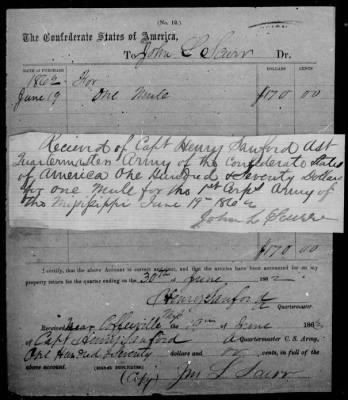 (No. 12.)
The Confederate States of America,
To John L Saurr Dr.
DATE OF PURCHASE. DOLLARS CENTS
1862 For
June 19 One Mule $170 00
Recieved of Capt Henry Sanford Ast
Quartermaster Army of the Confederate States
of America One Hundred & Seventy Dollars
for one Mule for the 1st Corps Army of
the Mississippi June 19th 1862
John L
$170 00
I certify, that the above Account is correct and just, and that the articles have been accounted for on my
property return for the quarter ending on the 30th of June 1862
Henry Sanford
Quartermaster
Received Near Coffeeville Miss 19th of June 1862
of Capt Henry Sanford A Quartermaster C. S. Army,
One Hundred & Seventy dollars and 00 cents, in full of the
above account. (SIGNED DUPLICATES.)
(Copy) Jno L Saurr